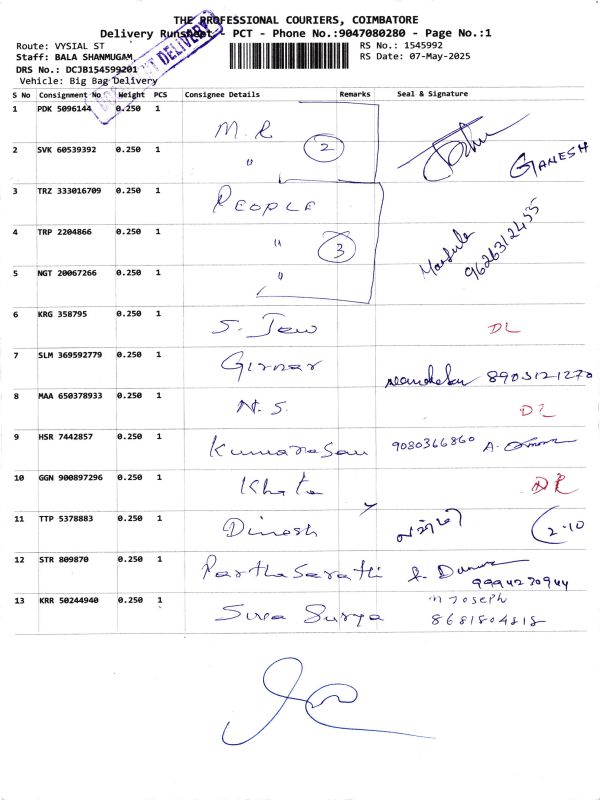 THE PROFESSIONAL COURIERS, COIMBATORE
Delivery Runsheet - PCT - Phone No.:9047080280 - Page No.:1
Route: VYSIAL ST
RS No.: 1545992
Staff: BALA SHANMUGAM
RS Date: 07-May-2025
DRS No.: DCJB154599201
Vehicle: Big Bag Delivery
DELIVERY
S No Consignment No Weight PCS Consignee Details Remarks Seal & Signature
1 PDK 5096144 0.250 1 M.R
2 SVK 60539392 0.250 1 " 2 GANESH
3 TRZ 333016709 0.250 1 PEOPLE
4 TRP 2204866 0.250 1 " 3 9626312455
5 NGT 20067266 0.250 1 "
6 KRG 358795 0.250 1 S. Jew DL
7 SLM 369592779 0.250 1 Girnar 8903121270
8 MAA 650378933 0.250 1 N.S. DL
9 HSR 7442857 0.250 1 Kumaresan 9080366860 A.
10 GGN 900897296 0.250 1 Khata DL
11 TTP 5378883 0.250 1 Dinesh 2-10
12 STR 809870 0.250 1 Parthasarathi 9994270944
13 KRR 50244940 0.250 1 Siva Surya n Joseph
8681804818